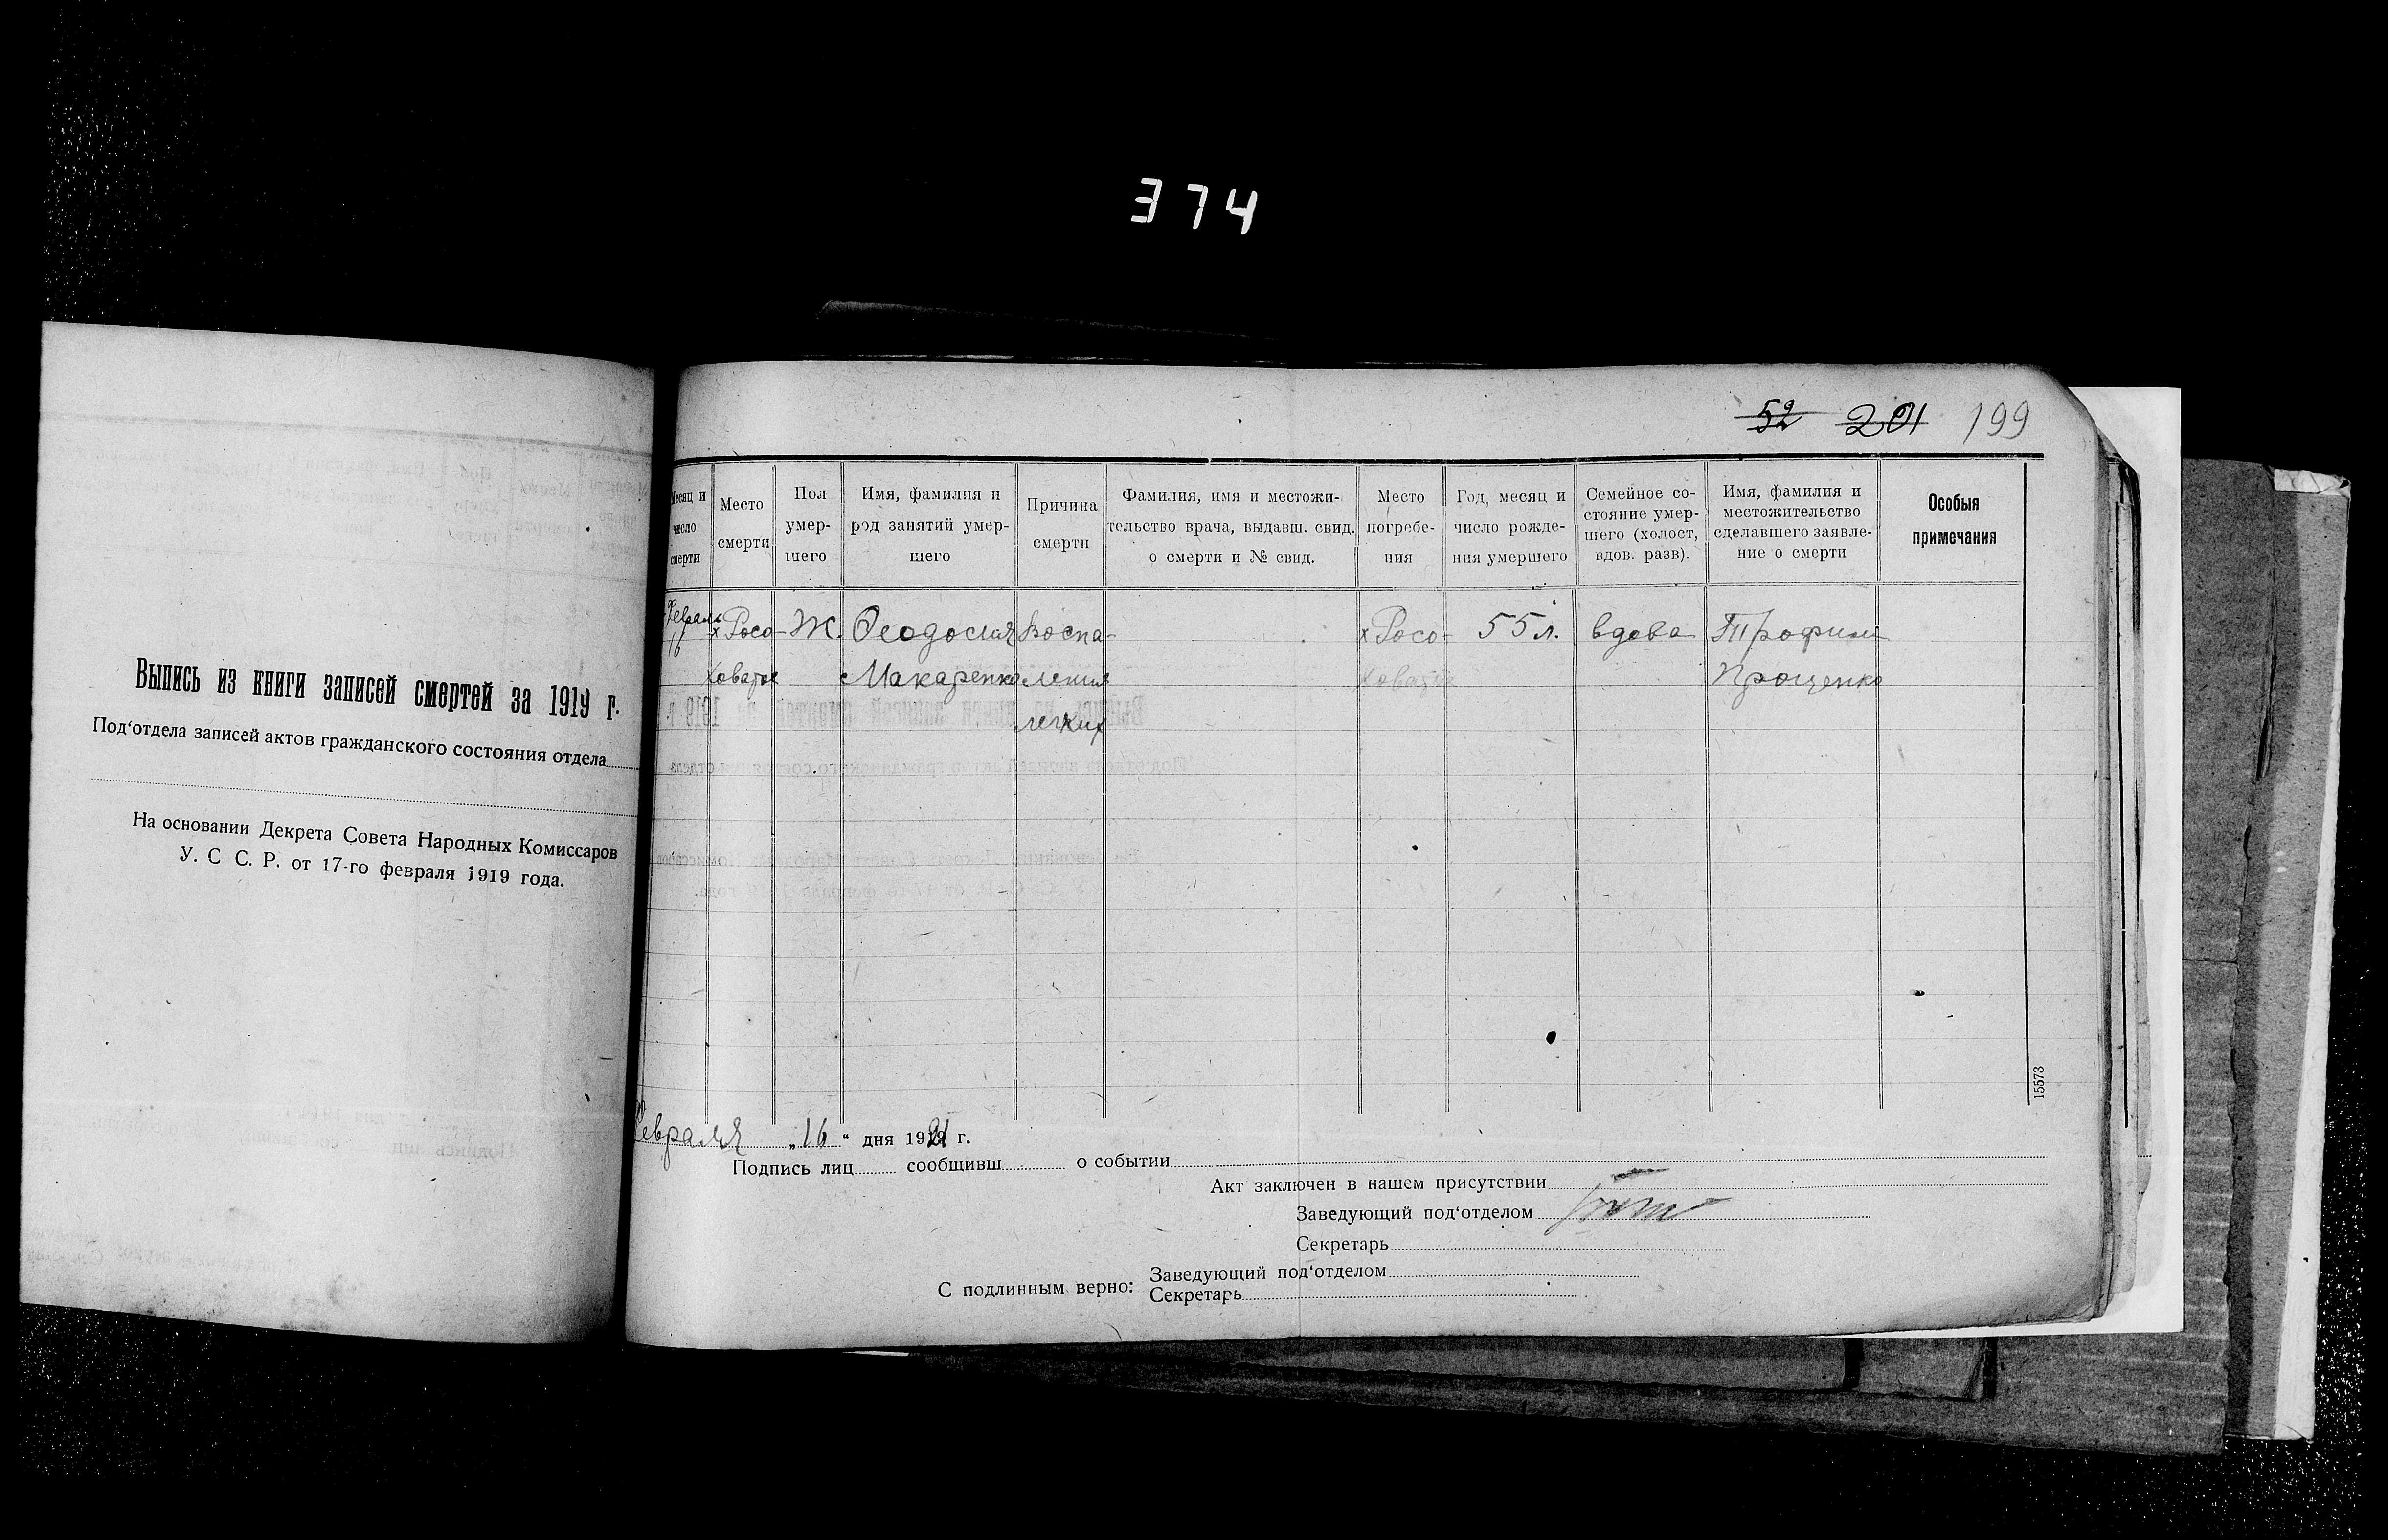 374
Выпись из книги записей смертей за 1919 г.
Под‘отдела записей актов гражданского состояния отдела
На основании Декрета Совета Народных Комиссаров
У. С С. Р. от 17-го февраля 1919 года.
52 201 199
Месяц и число смерти
Место смерти
Пол умер-шего
Имя, фамилия и род занятий умер-шего
Причина смерти
Фамилия, имя и местожи-тельство врача, выдавш. свид. о смерти и № свид.
Место погребе-ния
Год, месяц и число рожде-ния умершего
Семейное со-стояние умер-шего (холост, вдов. разв).
Имя, фамилия и местожительство сделавшего заявле-ние о смерти
Особыя примечания
Февраль х Росо- Ж. Феодосия Воспа- х Росо- 55 л. вдова Трофим
16 ховатое Макаренко ления ховатое Проценко
легких
15573
Февраля „16“ дня 1921 г.
Подпись лиц сообщивш о событии
Акт заключен в нашем присутствии
Заведующий под‘отделом
Секретарь
С подлинным верно: Заведующий под‘отделом
Секретарь